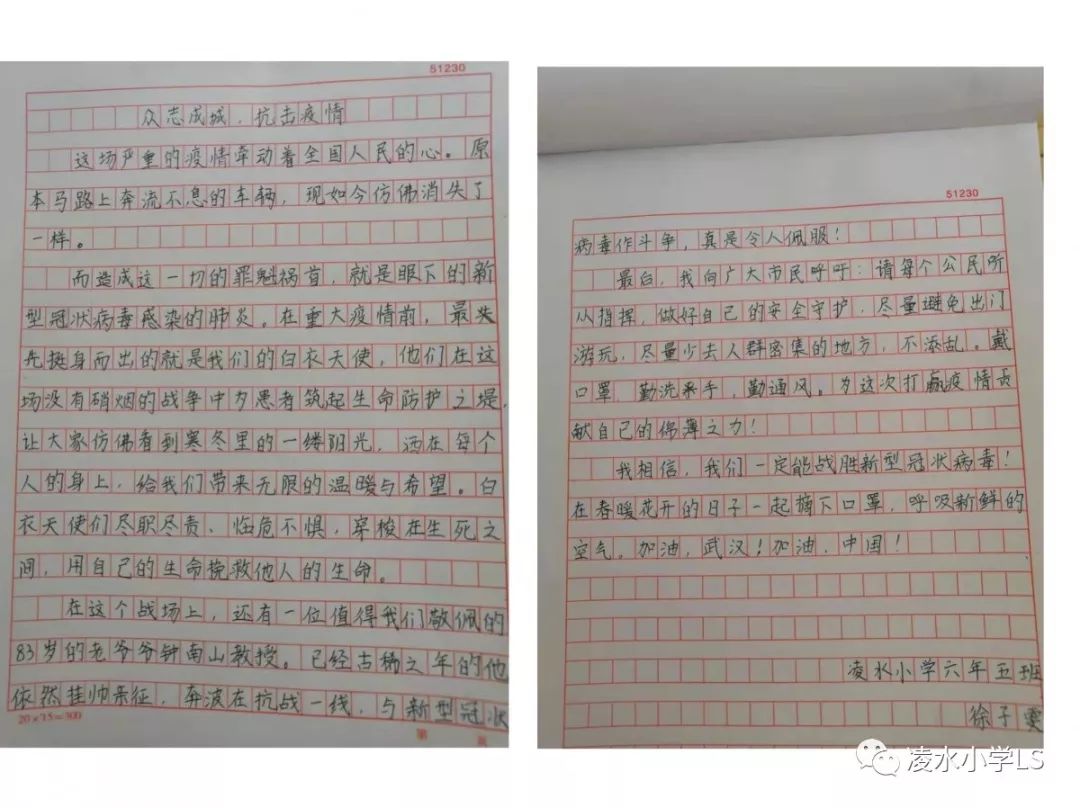 51230
众志成城，抗击疫情
这场严重的疫情牵动着全国人民的心。原
本马路上奔流不息的车辆，现如今仿佛消失了
一样。
而造成这一切的罪魁祸首，就是眼下的新
型冠状病毒感染的肺炎。在重大疫情前，最先
先挺身而出的就是我们的白衣天使，他们在这
场没有硝烟的战争中为患者筑起生命防护之堤，
让大家仿佛看到寒冬里的一缕阳光，洒在每个
人的身上，给我们带来无限的温暖与希望。白
衣天使们尽职尽责、临危不惧，穿梭在生死之
间，用自己的生命挽救他人的生命。
在这个战场上，还有一位值得我们敬佩的
83岁的老爷爷钟南山教授。已经古稀之年的他
依然挂帅亲征，奔波在抗战一线，与新型冠状
20×15=300
第 页
51230
病毒作斗争，真是令人佩服！
最后，我向广大市民呼吁：请每个公民听
从指挥，做好自己的安全守护，尽量避免出门
游玩，尽量少去人群密集的地方，不添乱。戴
口罩，勤洗手，勤通风。为这次打赢疫情贡
献自己的绵薄之力！
我相信，我们一定能战胜新型冠状病毒！
在春暖花开的日子一起摘下口罩，呼吸新鲜的
空气。加油，武汉！加油，中国！
凌水小学六年五班
徐子雯
凌水小学LS